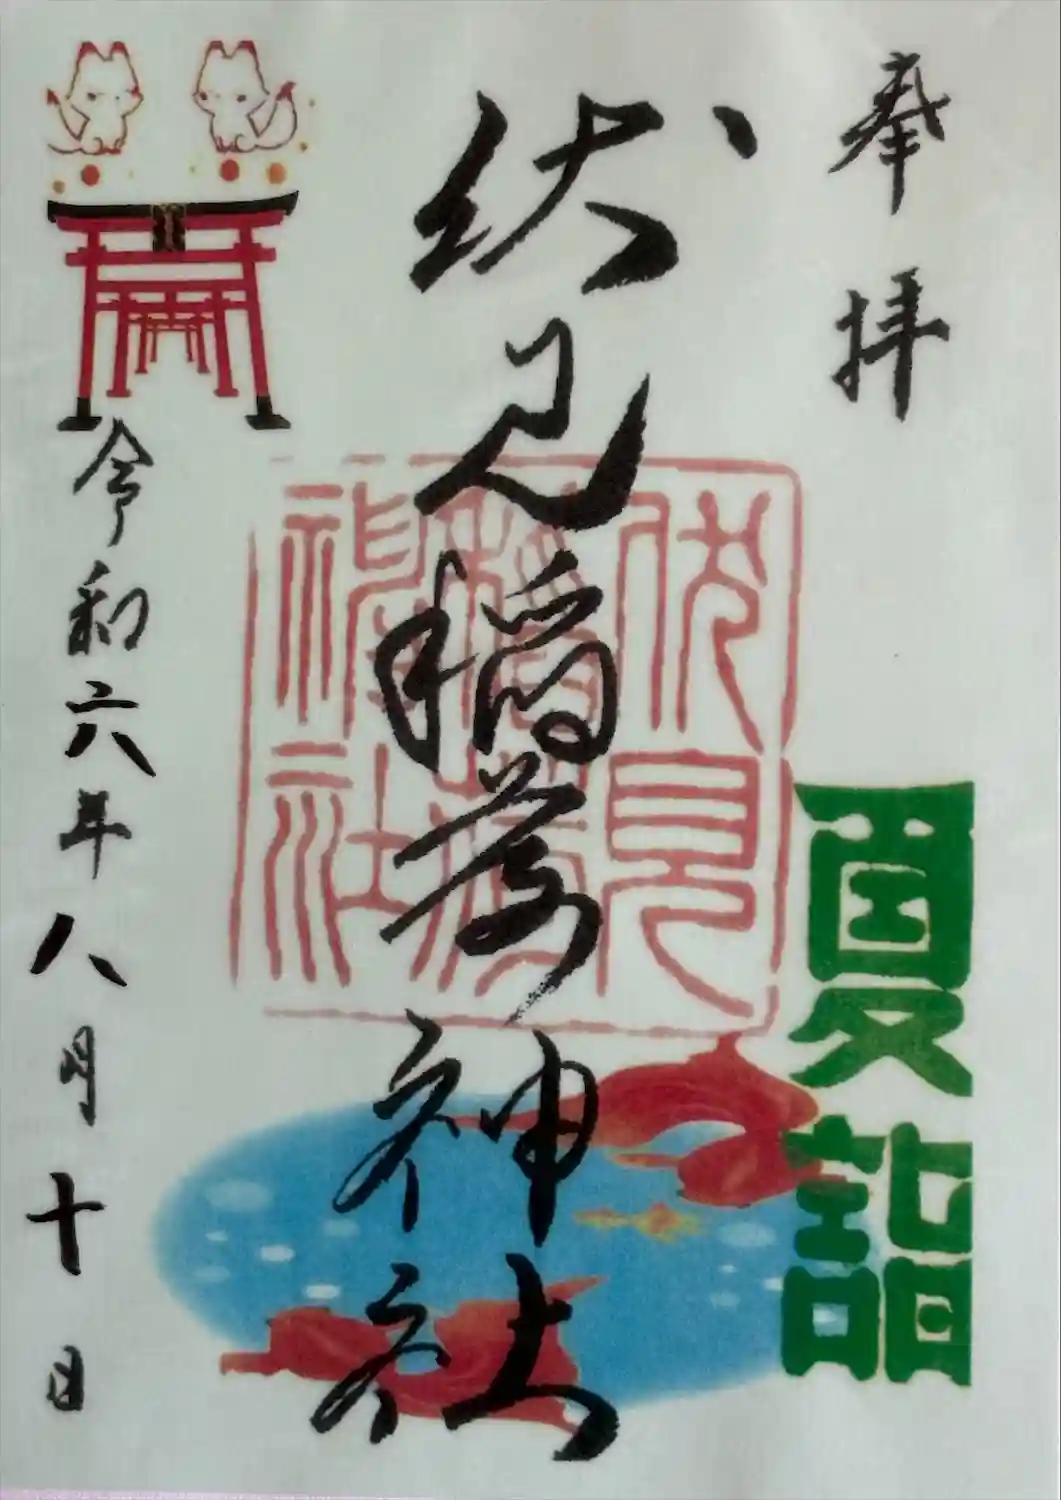 奉拝
夏詣
伏見稲荷神社
伏見
稲荷
神社
令和六年八月十日